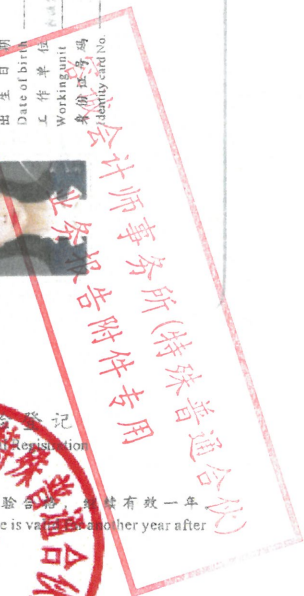 出生日期
Date of birth
工作单位
Working unit
身份证号码
Identity card No.
会计师事务所(特殊普通合伙)
业务报告附件专用
登记
Registration
验合格 继续有效一年
e is va another year after
殊普通合伙